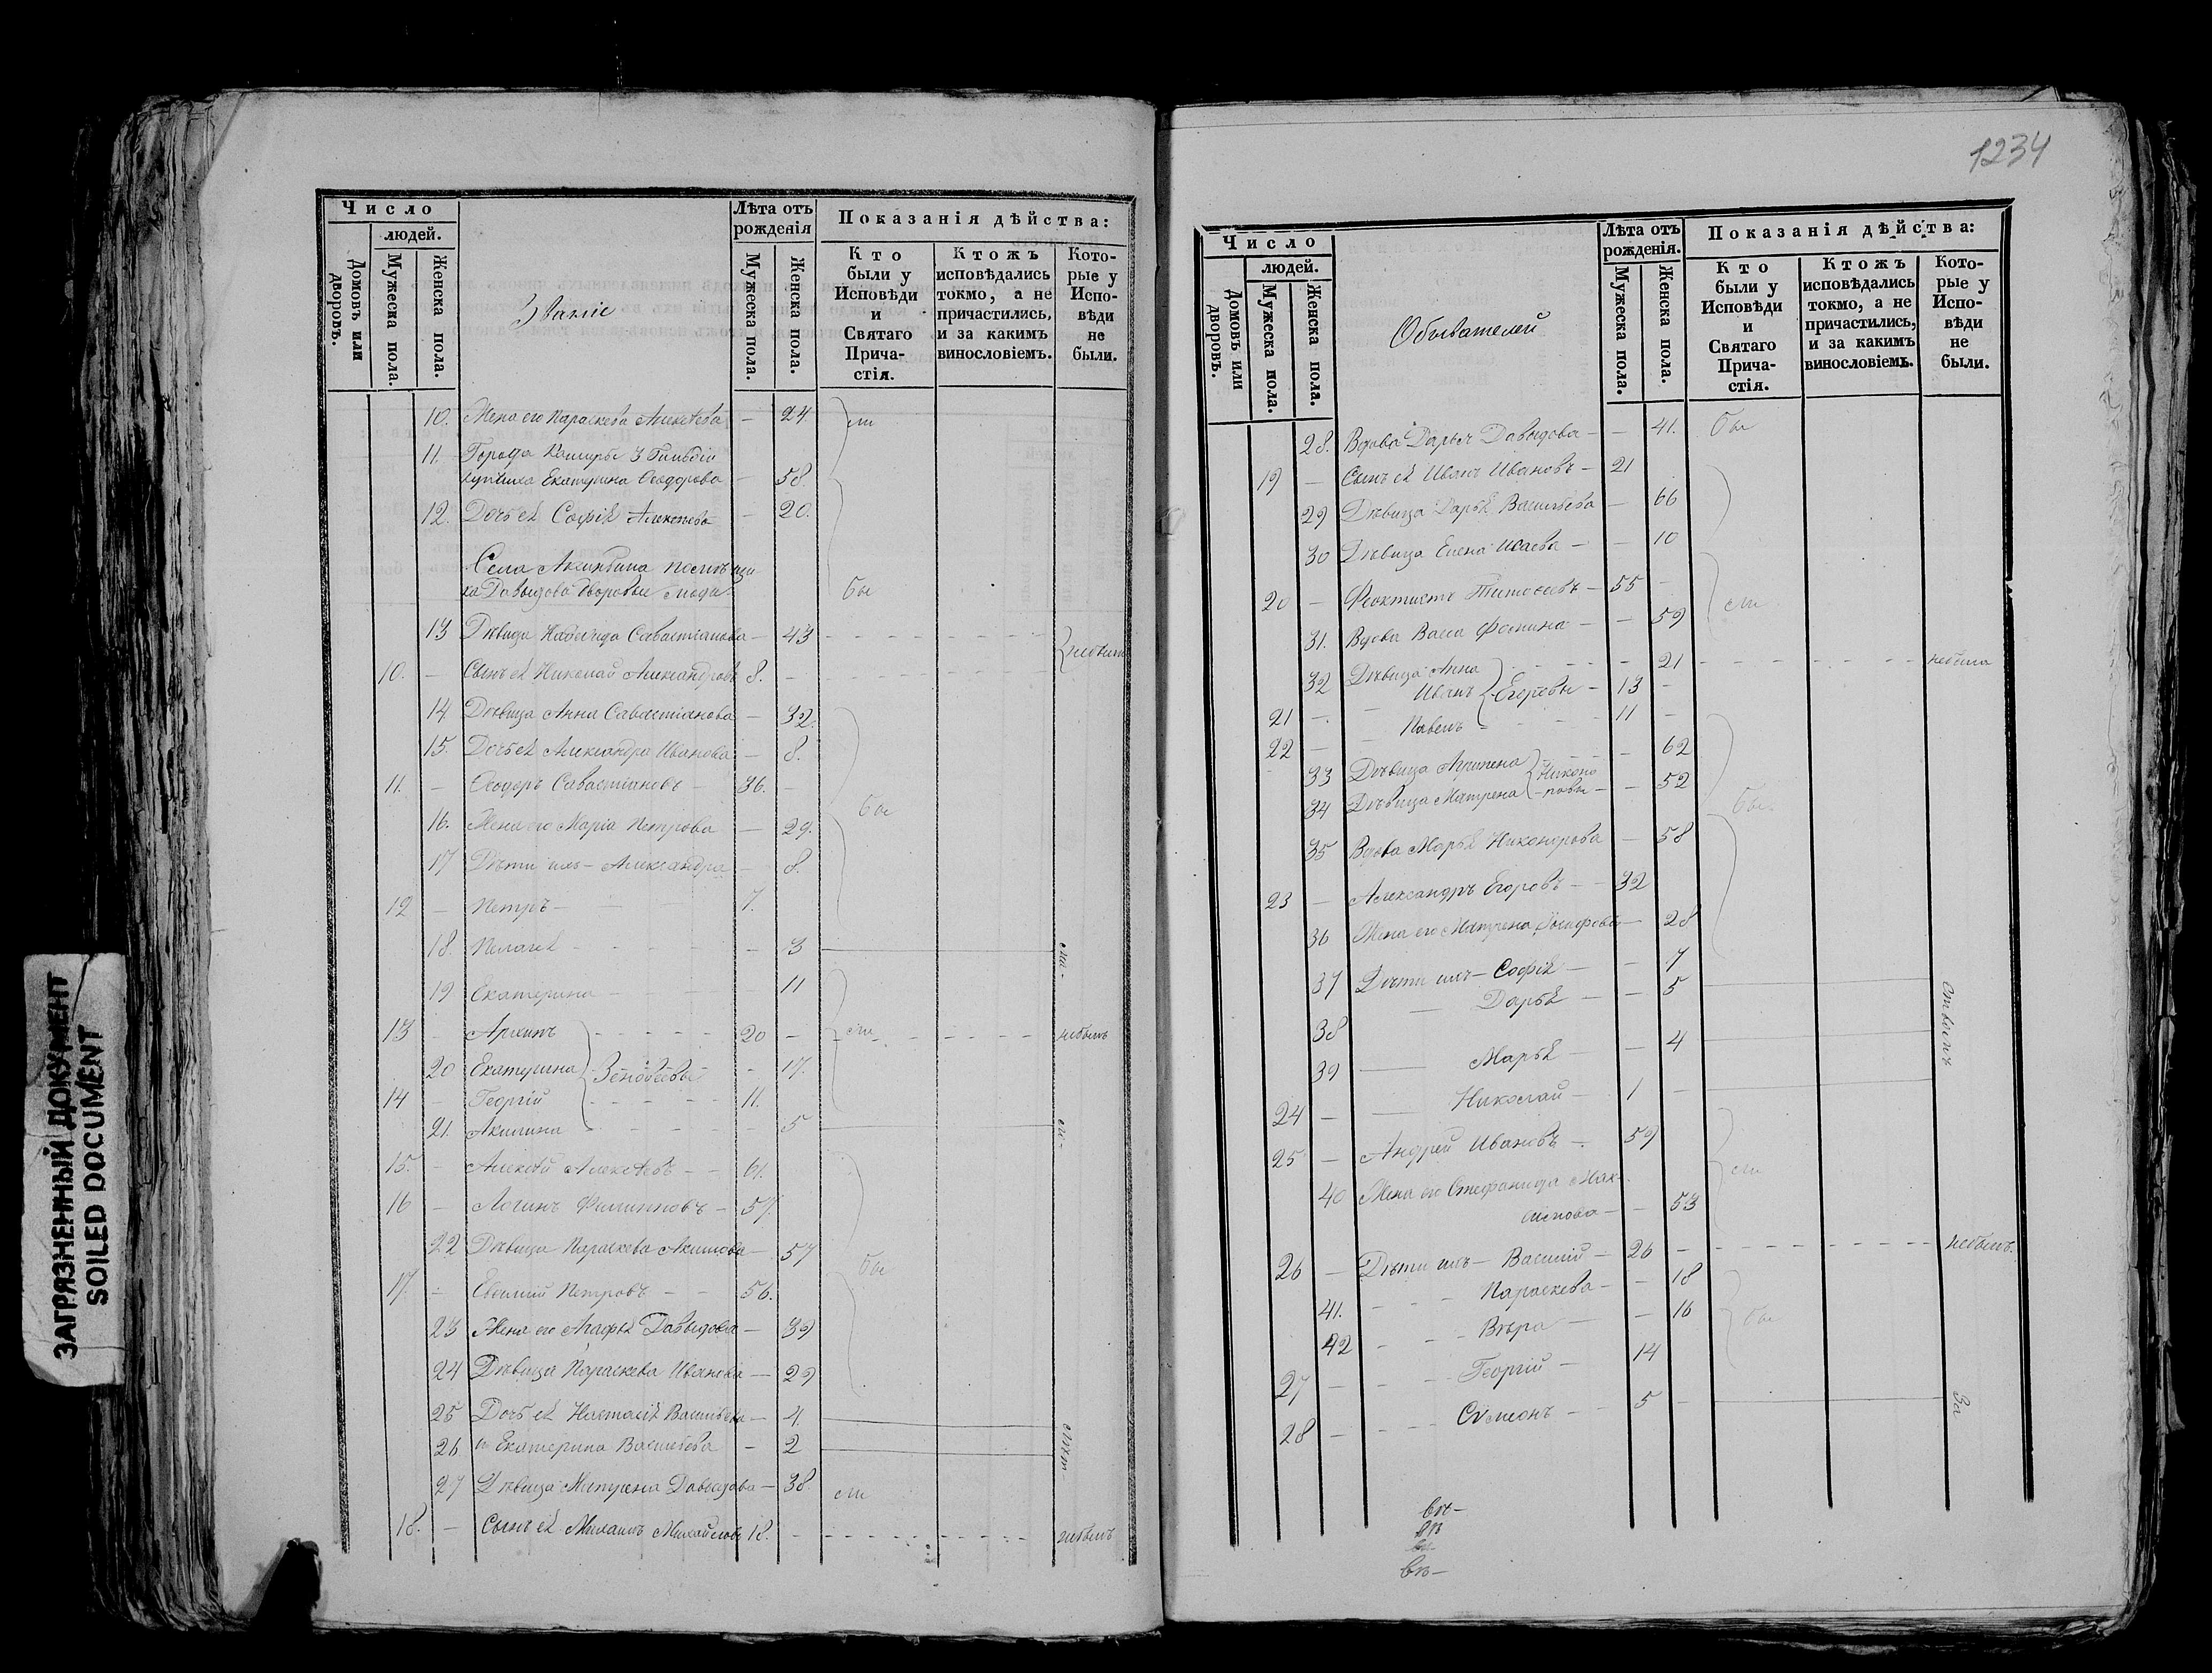 Число
людей.
Домовъ или дворовъ.
Мужеска пола.
Женска пола.
Званіе
Лѣта отъ рожденія
Мужеска пола.
Женска пола.
Показанія дѣйства:
Кто были у Исповѣди и Святаго Прича-стія.
Ктожъ исповѣдались токмо, а не причастились, и за какимъ винословіемъ.
Кото-рые у Испо-вѣди не были.
10. Жена его Параскева Алексѣева — 24. ли
11. Города Каширы 3 Гильдіи
купчиха Екатерина Ѳеодорова — 58.
12. Дочь ея Софія Алексѣева — 20.
Села помѣщи-
ка Давыдова дворовые люди. бы
13 Дѣвица Надежда Савастіанова — 43
10. — Сынъ ея Николай Александровъ 8. —
14. Дѣвица Анна Савастіанова — 32.
15. Дочь ея Александра Иванова — 8.
11. — Ѳеодоръ Савастіановъ — 36. —
16. Жена его Марія Петрова — 29. бы
17 Дѣти ихъ — Александра — 8.
12 — Петръ — 7.
18. Пелагея — 3
19 Екатерина — 11
13 — Архипъ — 20 — небылъ
20 Екатерина — 17.
14 — Георгій — 11.
21. Акилина — 5
15. — Алексѣй Алексѣевъ — 61.
16 — Логинъ Филипповъ — 57.
22 Дѣвица Параскева Акимова — 57 бы
17. — Евѳимій Петровъ — 56.
23 Жена его Агафья Давыдова — 39
24 Дѣвица Параскева Иванова — 29
25 Дочь ея Настасія Васильева — 4.
26 Екатерина Васильева — 2
27 Дѣвица Матрена Давыдова — 38. ли
18. — Сынъ ея Михаилъ Михайловъ 18. — небылъ
1234
Число
людей.
Домовъ или дворовъ.
Мужеска пола.
Женска пола.
Обывателей
Лѣта отъ рожденія.
Мужеска пола.
Женска пола.
Показанія дѣйства:
Кто были у Исповѣди и Святаго Прича-стія.
Ктожъ исповѣдались токмо, а не причастились, и за какимъ винословіемъ.
Кото-рые у Испо-вѣди не были.
28. Вдова Дарья Давыдова — 41. бы
19 — Сынъ ея Иванъ Ивановъ — 21
29 Дѣвица Дарья Васильева — 66
30 Дѣвица Елена Исаева — 10
20 — Феоктистъ — 55 —
31. Вдова Васса Фомина — 59 ли
32 Дѣвица Анна — 21 небыла
21 — Иванъ Егоровы — 13 —
22 — Павелъ — 11 —
33 Дѣвица Агрипена — 62
34 Дѣвица Матрена — 52 бы
35 Вдова Марья Никонорова — 58
23 — Александръ Егоровъ — 32
36 Жена его Матрена Іосифова — 28
37 Дѣти ихъ — Софія — 7
38 — Дарья — 5
39 — Марья — 4
24 — Николай — 1 —
25 — Андрей Ивановъ — 59
40 Жена его Стефанида Мак-
симова — 53 ли
26 — Дѣти ихъ — Василій — 26 — небылъ.
41. Параскева — 18
42 — Вѣра — 16 бы
27 — Георгій — 14
28 — Сѵмеонъ — 5 —
ЗАГРЯЗНЕННЫЙ ДОКУМЕНТ
SOILED DOCUMENT